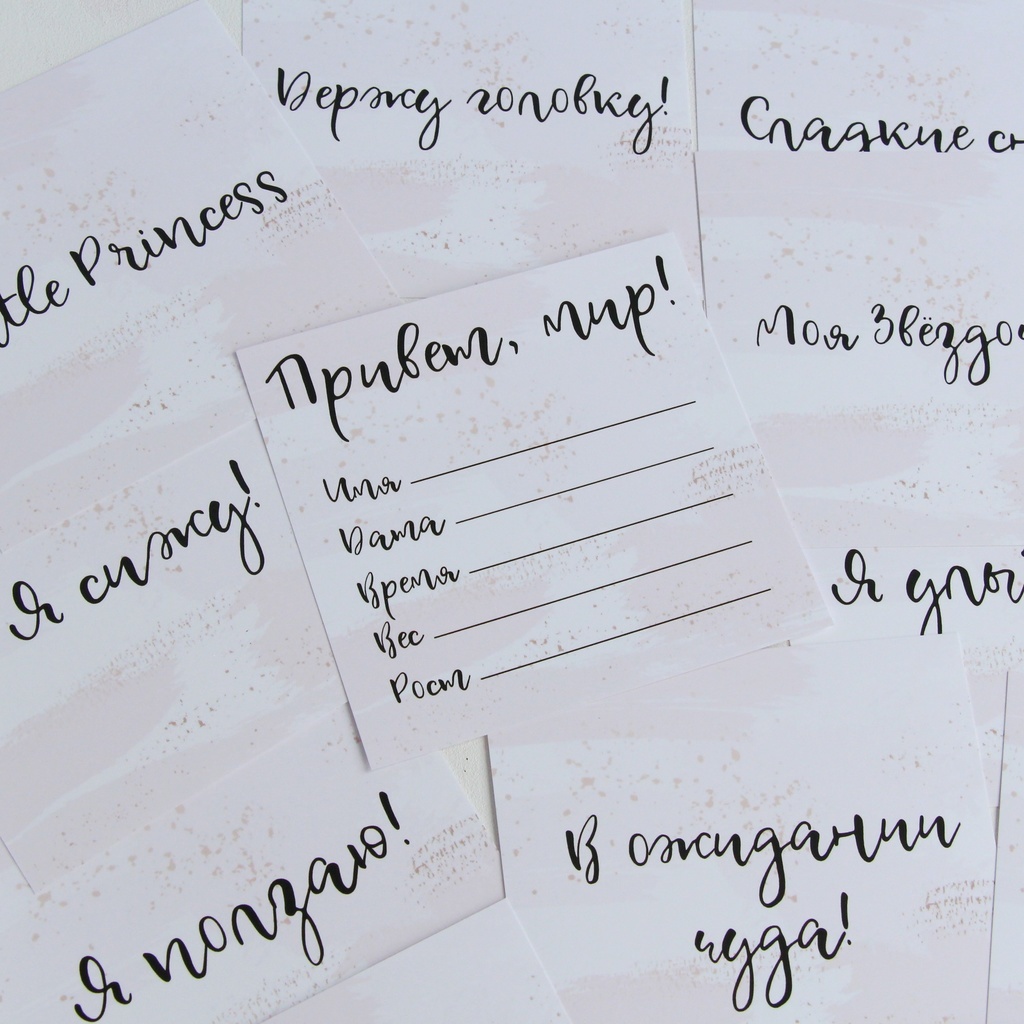 Держу головку!
Сладкие
Princess
Привет, мир!
Имя
Дата
Время
Вес
Рост
Моя
Я сижу!
Я
Я ползаю!
В ожидании
чуда!